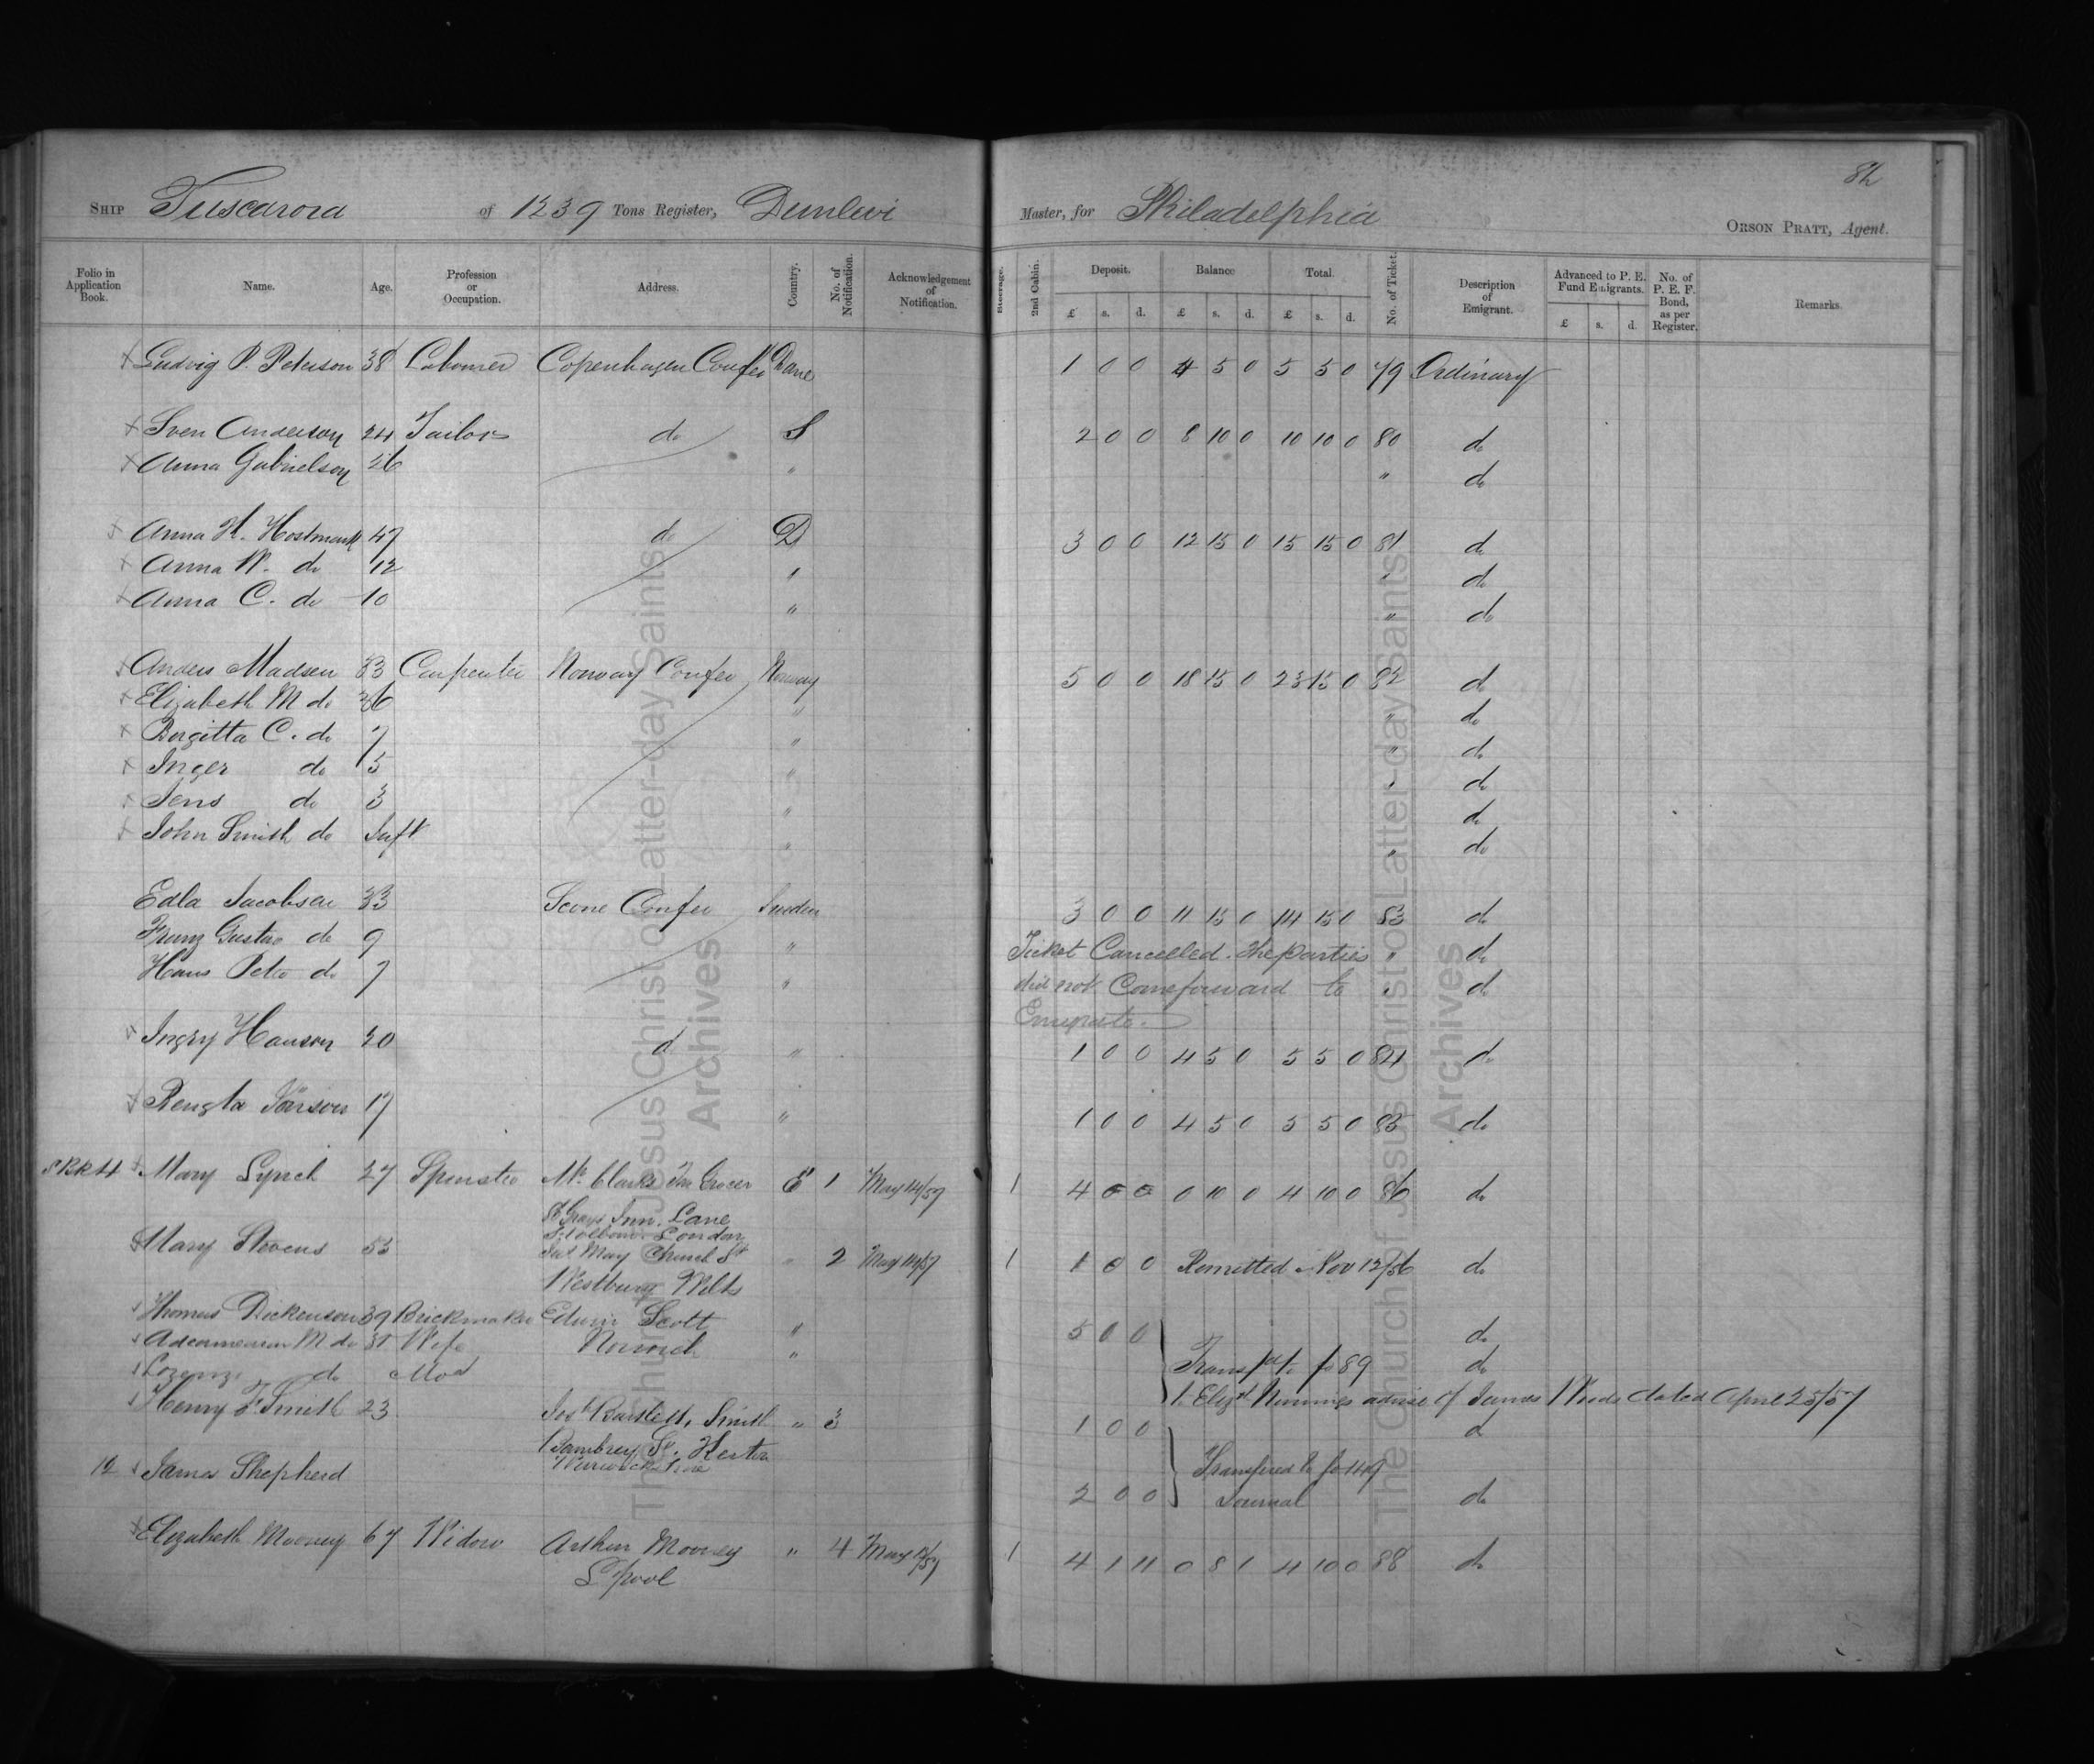 82
SHIP Tuscarora of 1239 Tons Register, Dunlevi Master, for Philadelphia
ORSON PRATT, Agent.
Folio in Application Book. Name. Age. Profession or Occupation. Address. Country. No. of Notification. Acknowledgement of Notification. Steerage. 2nd Cabin. Deposit. Balance Total. No. of Ticket. Description of Emigrant. Advanced to P. E. Fund Emigrants. No. of P. E. F. Bond, as per Register. Remarks.
£ s. d. £ s. d. £ s. d. £ s. d.
Ludvig P. Peterson 38 Labourer Copenhagen Confer Dane 1 0 0 4 5 0 5 5 0 79 Ordinary
Sven Anderson 24 Tailor do S 2 0 0 8 10 0 10 10 0 80 do
Anna Gabrielson 26 " " do
Anna H. Hostmark 47 do D 3 0 0 12 15 0 15 15 0 81 do
Anna W. do 12 " " do
Anna C. do 10 " " do
Anders Madsen 33 Carpenter Norway Confer Norway 5 0 0 18 15 0 23 15 0 82 do
Elizabeth M do 36 " " do
Birgitta C. do 7 " " do
Inger do 5 " " do
Jens do 3 " do
John Smith do Inft " " do
Edla Jacobsen 33 Scone Confer Sweden 3 0 0 11 15 0 14 15 0 83 do
Franz Gustav do 9 " Ticket Cancelled. The parties " do
Hans Peter do 7 " did not Come forward to " do
Emigrate.
Ingry Hanson 20 do " 1 0 0 4 5 0 5 5 0 84 do
Bengta Parson 17 " 1 0 0 4 5 0 5 5 0 85 do
Mary Lynch 27 Spinster Mr. Clarke Grocer E 1 May 14/57 1 4 0 0 0 10 0 4 10 0 86 do
Grays Inn. Lane
Holborn. London
Mary Stevens 53 May Church St " 2 May 14/57 1 1 0 0 Remitted Nov 12/56 do
Westbury Wilts
Thomas Dickenson 39 Brickmaker Edwin Scott " 5 0 0 do
M do Wife Norwich " Transfd to fo 89 do
do Elizth advise of James Woods dated April 25/57
Henry F. Smith 23 Josh Bartlett Smith " 3 1 0 0 d
12 James Shepherd 2 0 0 Transfered to fo 149 Journal do
Elizabeth Mooney 67 Widow Arthur Mooney " 4 May 12/57 1 4 1 11 0 8 1 4 10 0 88 do
L'pool
The Church of Jesus Christ of Latter-day Saints
Archives
The Church of Jesus Christ of Latter-day Saints
Archives